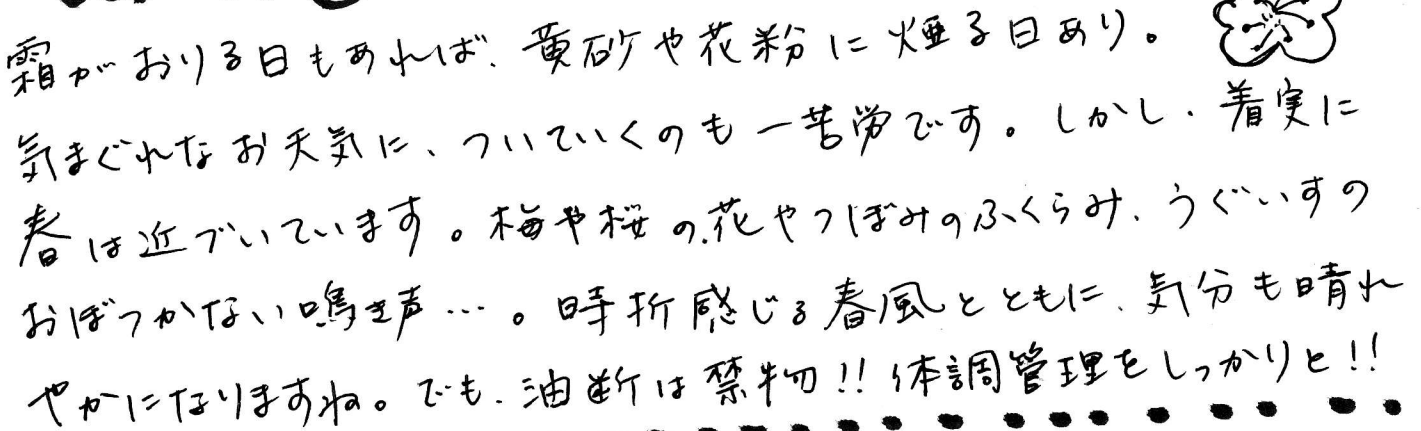 霜がおりる日もあれば、黄砂や花粉に煙る日あり。
気まぐれなお天気に、ついていくのも一苦労です。しかし、着実に
春は近づいています。梅や桜の花やつぼみのふくらみ、うぐいすの
おぼつかない鳴き声…。時折感じる春風とともに、気分も晴れ
やかになりますね。でも、油断は禁物!!体調管理をしっかりと!!